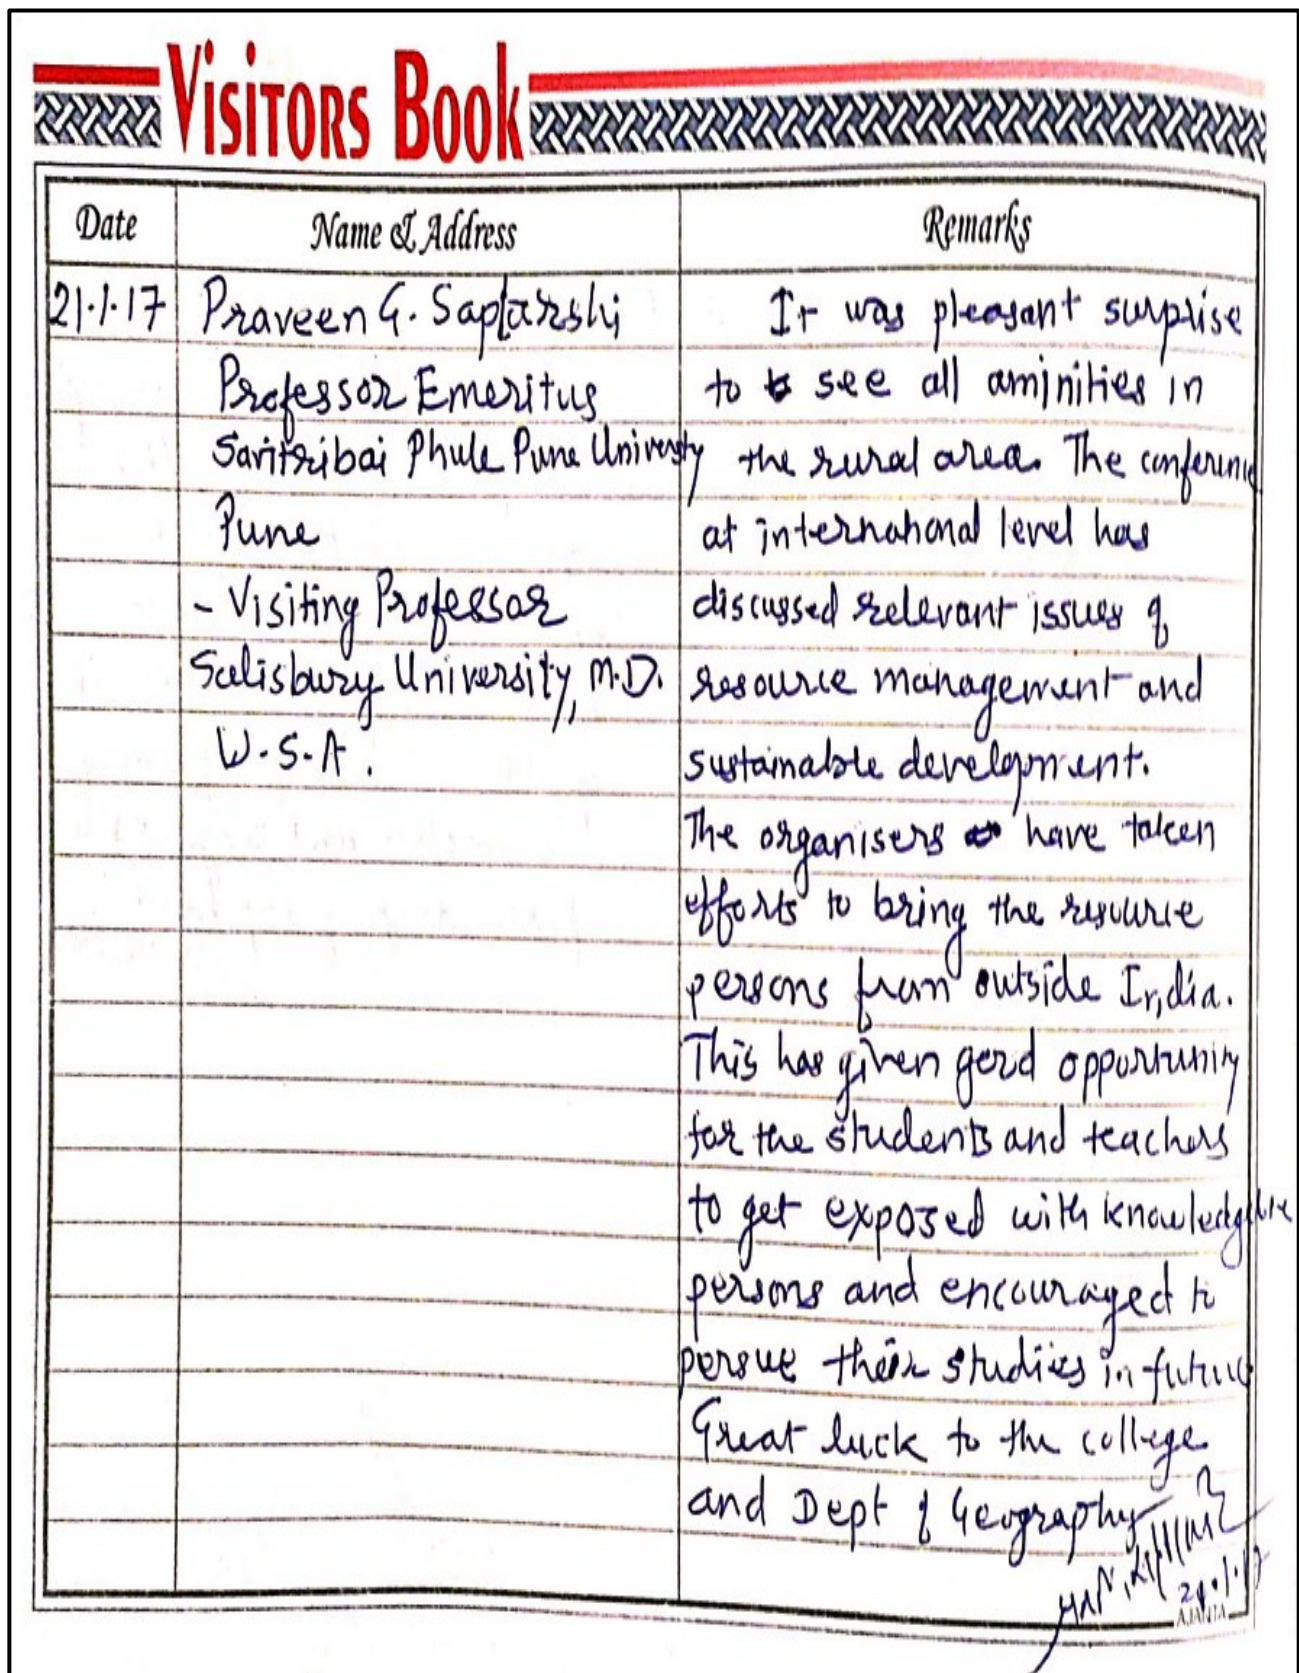 Visitors Book
Date
Name & Address
Remarks
21.1.17
Praveen G. Saptarshi
Professor Emeritus
Savitribai Phule Pune University
Pune
- Visiting Professor
Salisbury University, M.D.
U.S.A.
It was pleasant surprise
to see all aminities in
the rural area. The conference
at international level has
discussed relevant issues of
resource management and
sustainable development.
The organisers have taken
efforts to bring the resource
persons from outside India.
This has given good opportunity
for the students and teachers
to get exposed with knowledgable
persons and encouraged to
persue their studies in future
Great luck to the college
and Dept of Geography
21.1.17
AJANTA